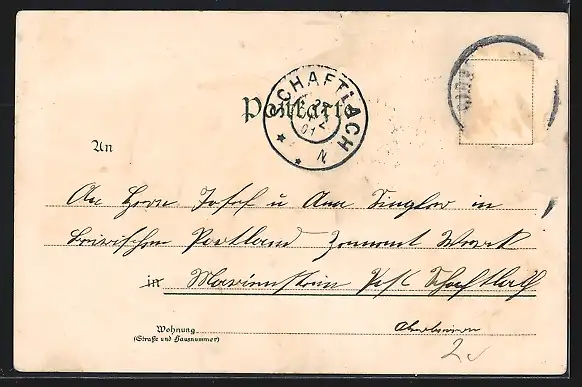 SCHAFTLACH
Postkarte
An
An Herrn Josef u Anna Singlor in
beirischen Portland Zement Werk
in Marienstein Post Schaftlach
Wohnung
(Straße und Hausnummer)
2